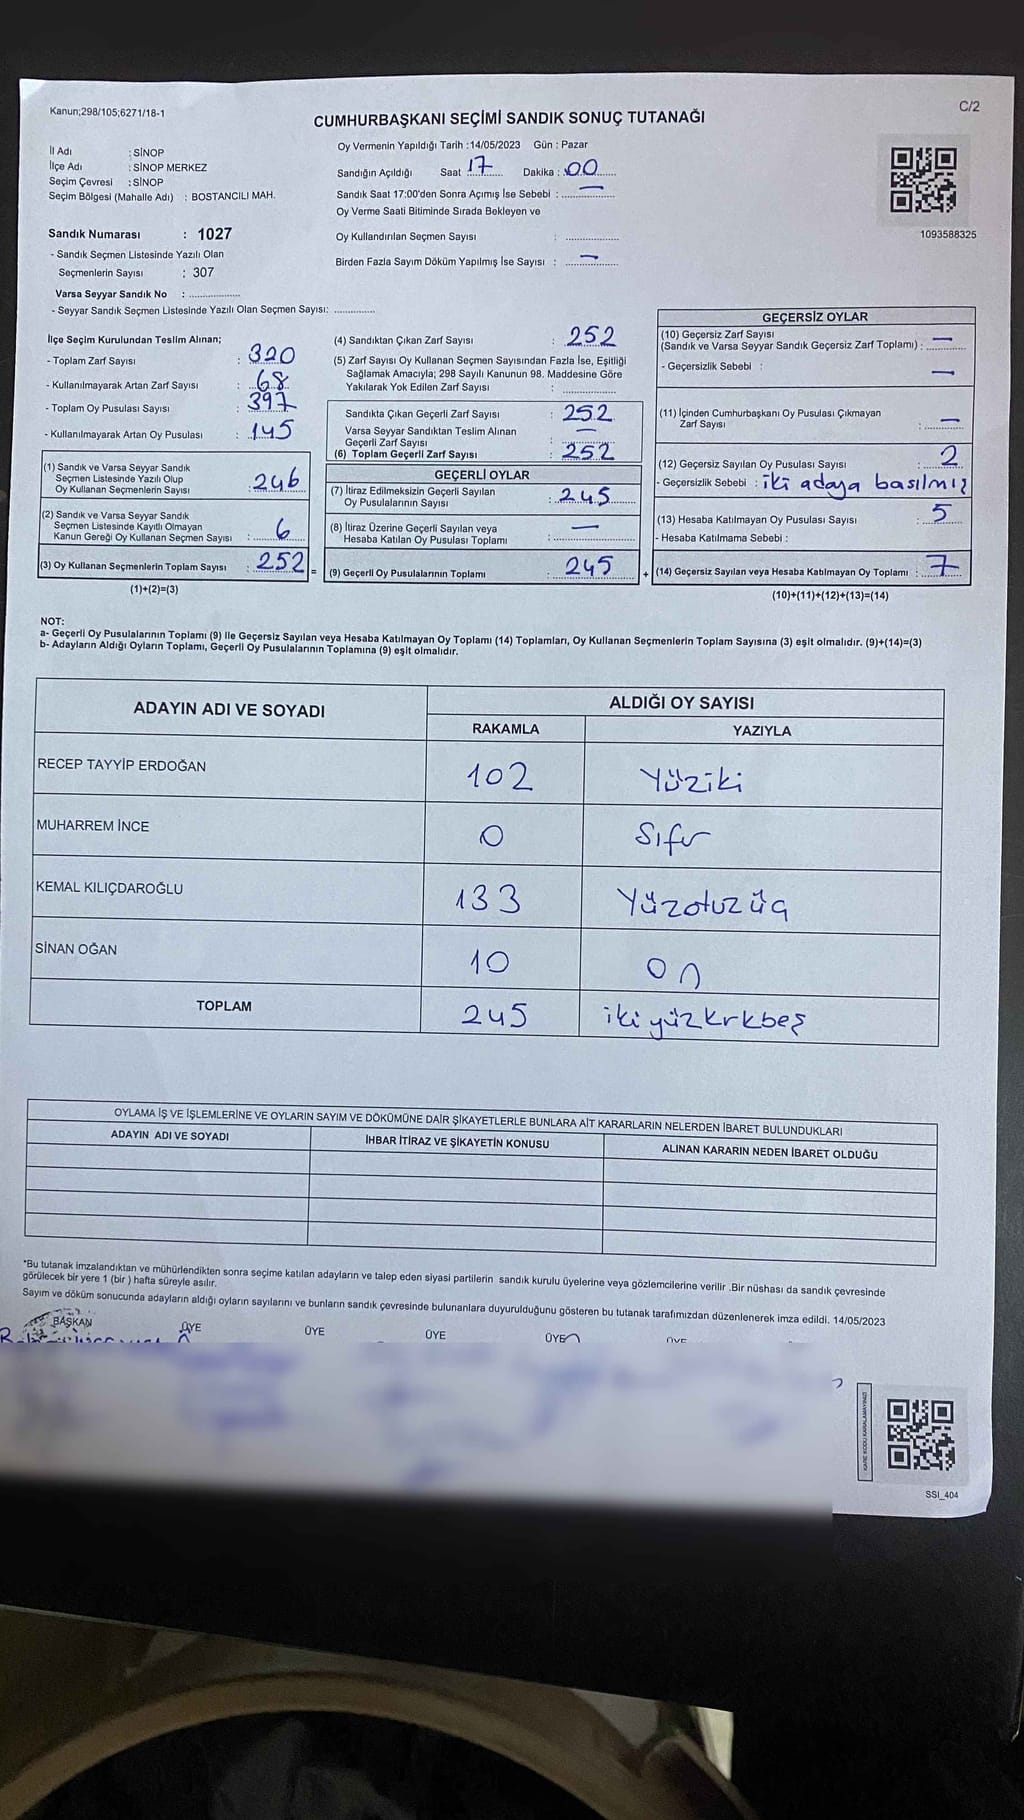 Kanun;298/105;6271/18-1
C/2
CUMHURBAŞKANI SEÇİMİ SANDIK SONUÇ TUTANAĞI
İl Adı : SİNOP
İlçe Adı : SİNOP MERKEZ
Seçim Çevresi : SİNOP
Seçim Bölgesi (Mahalle Adı) : BOSTANCILI MAH.
Sandık Numarası : 1027
- Sandık Seçmen Listesinde Yazılı Olan
Seçmenlerin Sayısı : 307
Varsa Seyyar Sandık No : ..................
- Seyyar Sandık Seçmen Listesinde Yazılı Olan Seçmen Sayısı: ..............
Oy Vermenin Yapıldığı Tarih :14/05/2023 Gün : Pazar
Sandığın Açıldığı Saat 17 Dakika : 00
Sandık Saat 17:00'den Sonra Açımış İse Sebebi : —
Oy Verme Saati Bitiminde Sırada Bekleyen ve
Oy Kullandırılan Seçmen Sayısı : ..................
Birden Fazla Sayım Döküm Yapılmış İse Sayısı : —
1093588325
İlçe Seçim Kurulundan Teslim Alınan;
- Toplam Zarf Sayısı : 320
- Kullanılmayarak Artan Zarf Sayısı : 68
- Toplam Oy Pusulası Sayısı : 397
- Kullanılmayarak Artan Oy Pusulası : 145
(1) Sandık ve Varsa Seyyar Sandık
Seçmen Listesinde Yazılı Olup
Oy Kullanan Seçmenlerin Sayısı : 246
(2) Sandık ve Varsa Seyyar Sandık
Seçmen Listesinde Kayıtlı Olmayan
Kanun Gereği Oy Kullanan Seçmen Sayısı : 6
(3) Oy Kullanan Seçmenlerin Toplam Sayısı : 252 =
(1)+(2)=(3)
(4) Sandıktan Çıkan Zarf Sayısı : 252
(5) Zarf Sayısı Oy Kullanan Seçmen Sayısından Fazla İse, Eşitliği
Sağlamak Amacıyla; 298 Sayılı Kanunun 98. Maddesine Göre
Yakılarak Yok Edilen Zarf Sayısı : ..................
Sandıkta Çıkan Geçerli Zarf Sayısı : 252
Varsa Seyyar Sandıktan Teslim Alınan
Geçerli Zarf Sayısı : —
(6) Toplam Geçerli Zarf Sayısı : 252
GEÇERLİ OYLAR
(7) İtiraz Edilmeksizin Geçerli Sayılan
Oy Pusulalarının Sayısı : 245
(8) İtiraz Üzerine Geçerli Sayılan veya
Hesaba Katılan Oy Pusulası Toplamı : —
(9) Geçerli Oy Pusulalarının Toplamı : 245 +
GEÇERSİZ OYLAR
(10) Geçersiz Zarf Sayısı
(Sandık ve Varsa Seyyar Sandık Geçersiz Zarf Toplamı) : —
- Geçersizlik Sebebi : —
(11) İçinden Cumhurbaşkanı Oy Pusulası Çıkmayan
Zarf Sayısı : —
(12) Geçersiz Sayılan Oy Pusulası Sayısı : 2
- Geçersizlik Sebebi : iki adaya basılmış
(13) Hesaba Katılmayan Oy Pusulası Sayısı : 5
- Hesaba Katılmama Sebebi :
(14) Geçersiz Sayılan veya Hesaba Katılmayan Oy Toplamı : 7
(10)+(11)+(12)+(13)=(14)
NOT:
a- Geçerli Oy Pusulalarının Toplamı (9) ile Geçersiz Sayılan veya Hesaba Katılmayan Oy Toplamı (14) Toplamları, Oy Kullanan Seçmenlerin Toplam Sayısına (3) eşit olmalıdır. (9)+(14)=(3)
b- Adayların Aldığı Oyların Toplamı, Geçerli Oy Pusulalarının Toplamına (9) eşit olmalıdır.
ADAYIN ADI VE SOYADI ALDIĞI OY SAYISI
RAKAMLA YAZIYLA
RECEP TAYYİP ERDOĞAN 102 Yüziki
MUHARREM İNCE 0 Sıfır
KEMAL KILIÇDAROĞLU 133 Yüzotuzüç
SİNAN OĞAN 10 On
TOPLAM 245 ikiyüzkrkbeş
OYLAMA İŞ VE İŞLEMLERİNE VE OYLARIN SAYIM VE DÖKÜMÜNE DAİR ŞİKAYETLERLE BUNLARA AİT KARARLARIN NELERDEN İBARET BULUNDUKLARI
ADAYIN ADI VE SOYADI İHBAR İTİRAZ VE ŞİKAYETİN KONUSU ALINAN KARARIN NEDEN İBARET OLDUĞU
*Bu tutanak imzalandıktan ve mühürlendikten sonra seçime katılan adayların ve talep eden siyasi partilerin sandık kurulu üyelerine veya gözlemcilerine verilir .Bir nüshası da sandık çevresinde
görülecek bir yere 1 (bir ) hafta süreyle asılır.
Sayım ve döküm sonucunda adayların aldığı oyların sayılarını ve bunların sandık çevresinde bulunanlara duyurulduğunu gösteren bu tutanak tarafımızdan düzenlenerek imza edildi. 14/05/2023
BAŞKAN ÜYE ÜYE ÜYE ÜYE ÜYE
KARE KODU KARALAMAYINIZ!
SSI_404